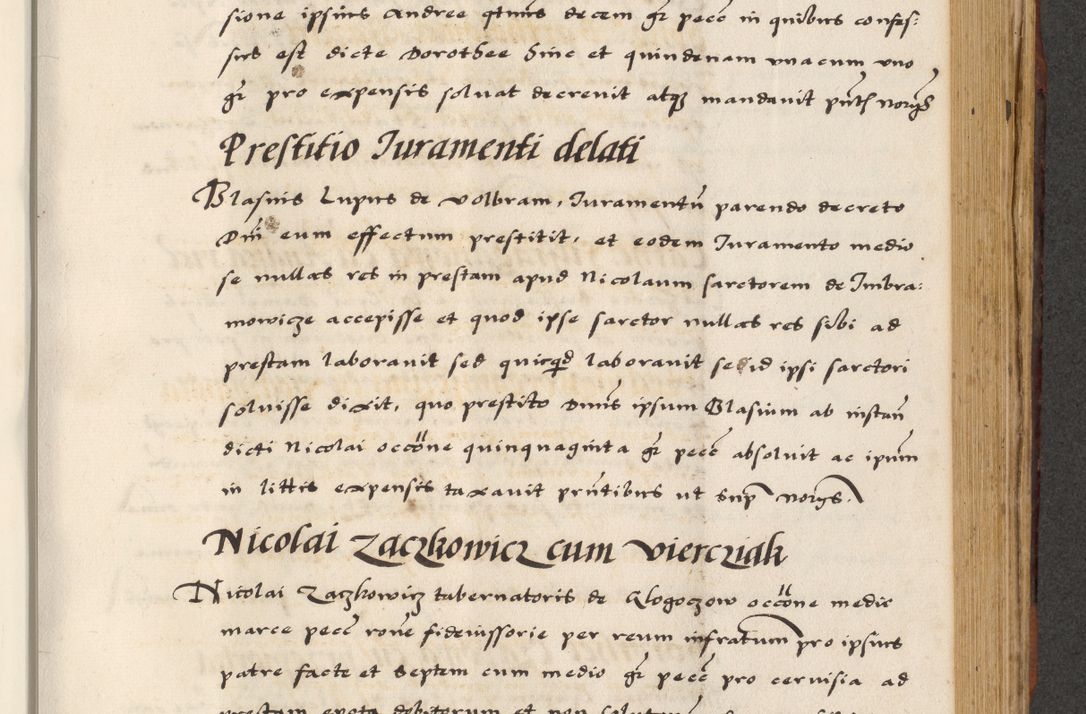 sione ipsius Andree qtmis decem gr pecc in quibus confes:
sus est dicte Dorothee sinc et quindenam una cum uno
gr pro expensis soluat decreuit atq mandauit pntibus norgs
Prestitio Iuramenti delati
Blasius Lupus de Volbram, Iuramentu parendo decreto
Dni eum effectum prestitit, et eodem Iuramento medio
se nullas res in prestam apud Nicolaum sarctorem de Imbra:
mowicze accepisse et quod ipse sarctor nullas res sibi ad
prestam laborauit sed quicqd laborauit se id ipsi sarctori
soluisse dixit, quo prestito Dnus ipsum Blasium ab instan
dicti Nicolai occone quinquaginta gr pecc absoluit ac ipum
in littis expensis taxauit pntibus ut sup norgs.
Nicolai Zaczkowicz cum Viercziak
Nicolai Zaczkowicz tabernatoris de Glogoczow occone medie
marce pecc rone fideiussorie per reum infratum pro ipsius
patre facte et septem cum medio gr pecc pro ceruisia ad
prestam epota debitorum et non